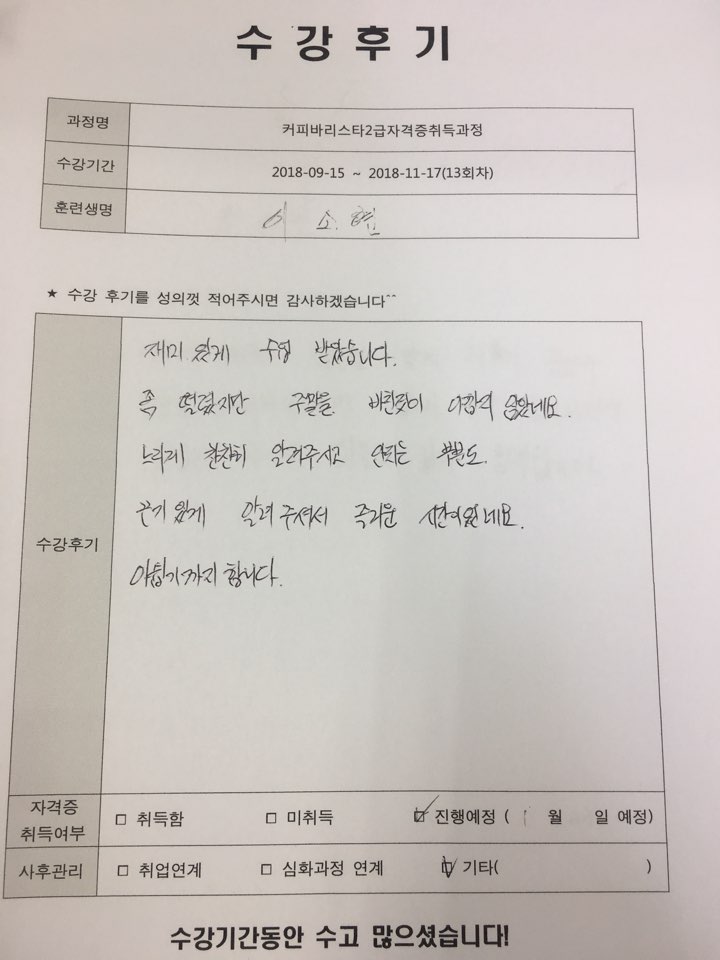 수강후기
과정명 커피바리스타2급자격증취득과정
수강기간 2018-09-15 ~ 2018-11-17(13회차)
훈련생명 이소현
★ 수강 후기를 성의껏 적어주시면 감사하겠습니다^^
재미 있게 수업 받았습니다.
좀 떨렸지만 주말을 바친것이 아깝지 않았네요.
느리게 찬찬히 알려주시고 안되는 부분도
끈기 있게 알려 주셔서 즐거운 시간이었네요.
수강후기
아쉽기까지 합니다.
자격증 취득여부 □ 취득함 □ 미취득 ☑ 진행예정 ( 월 일 예정)
사후관리 □ 취업연계 □ 심화과정 연계 ☑ 기타( )
수강기간동안 수고 많으셨습니다!